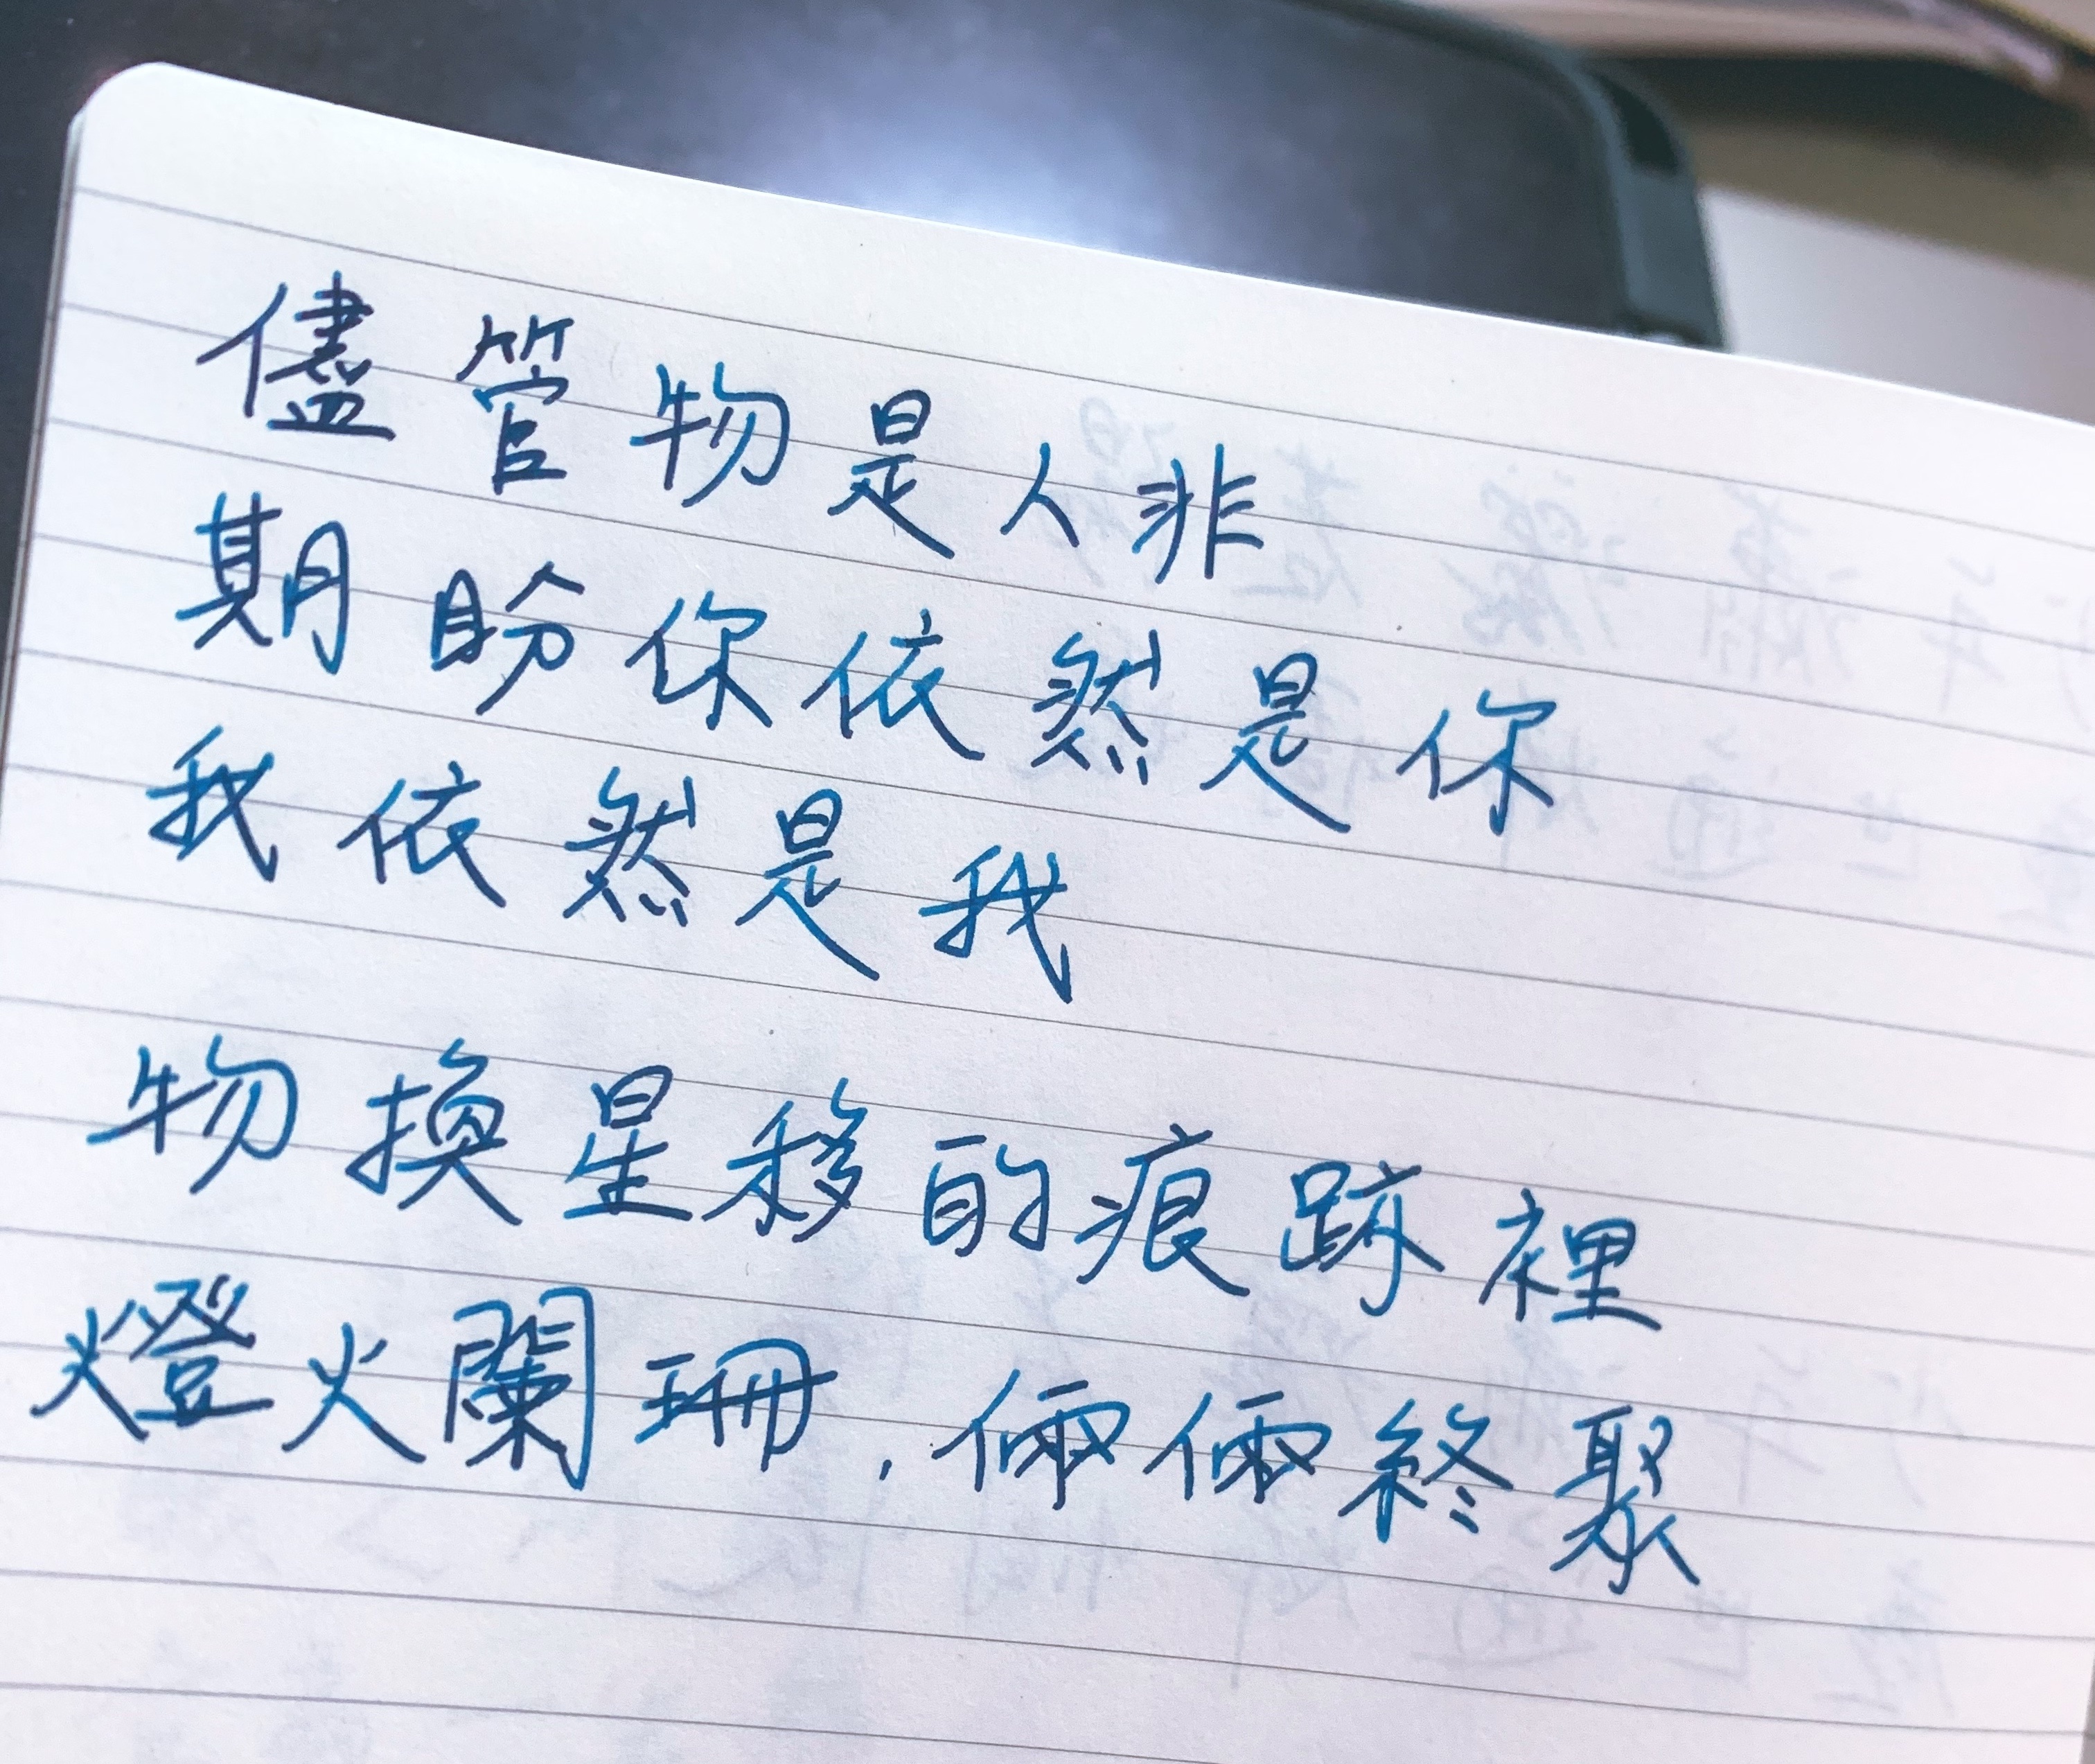 儘管物是人非
期盼你依然是你
我依然是我
物換星移的痕跡裡
燈火闌珊，倆倆終聚